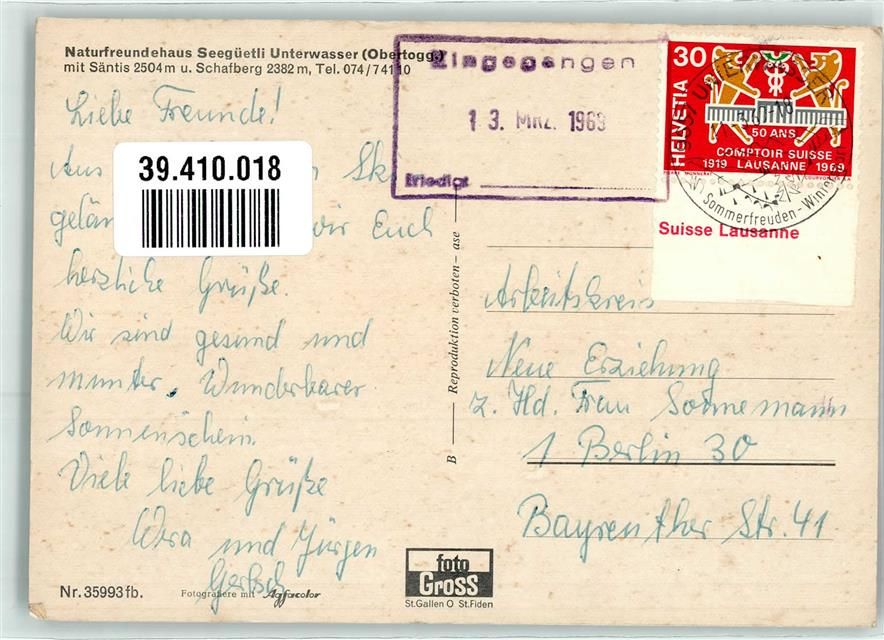 Naturfreundehaus Seegüetli Unterwasser (Obertogg.)
mit Säntis 2504 m u. Schafberg 2382 m, Tel. 074/74110
Liebe Freunde!
Aus
39.410.018
Sk
gelän
wir Euch
herzliche Grüße.
Wir sind gesund und
munter. Wunderbarer
Sonnenschein.
Viele liebe Grüße
Wera und Jürgen
Gertsch
Nr. 35993 fb.
Fotografiere mit Agfacolor
foto
GROSS
St.Gallen O St.Fiden
B — Reproduktion verboten — ase
Eingegangen
13. MRZ. 1969
Erledigt
30
HELVETIA
50 ANS
COMPTOIR SUISSE
1919 LAUSANNE 1969
Sommerfreuden - Winter
Suisse Lausanne
Arbeitskreis
Neue Erziehung
z. Hd. Frau Sonnemann
1 Berlin 30
Bayreuther Str. 41